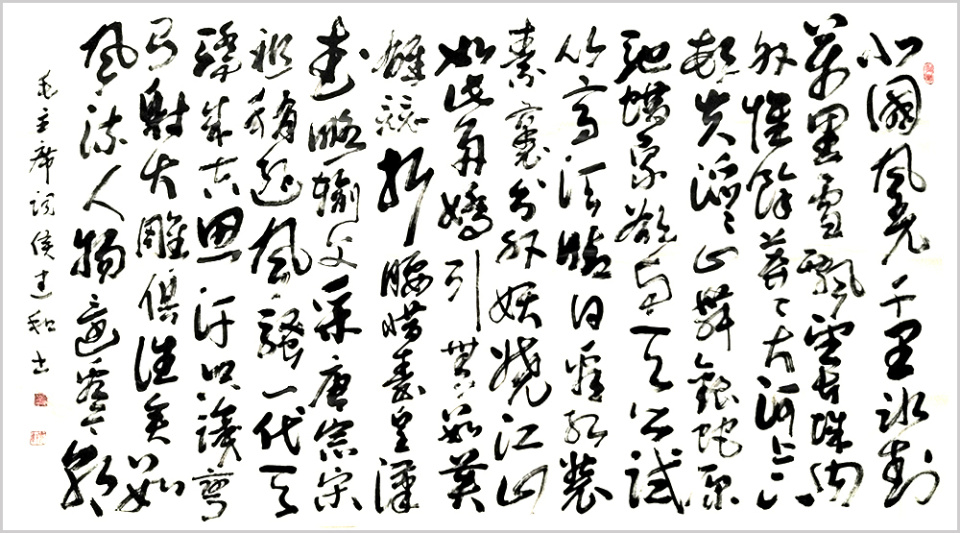 北國風光千里冰封
萬里雪飄望長城内
外惟餘莽莽大河上下
頓失滔滔山舞銀蛇原
馳蠟象欲與天公試
比高須晴日看紅裝
素裹分外妖嬈江山
如此多嬌引無數英
雄競折腰惜秦皇漢
武略輸文采唐宗宋
祖稍遜風騷一代天
驕成吉思汗只識彎
弓射大雕俱往矣數
風流人物還看今朝
毛主席詞侯建和书